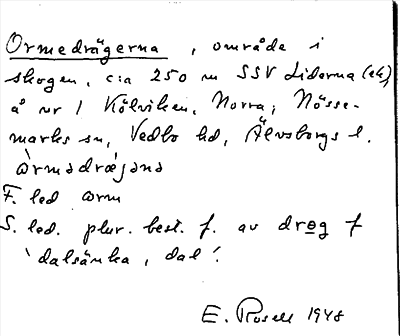 Ormedrägerna, område i
skogen, c:a 250 m SSV Liderna (ek),
å nr 1 Kölviken, Norra; Nösse-
marks sn, Vedbo hd, Älvsborgs l.
òrmədræ̀jənə
F. led orm
S. led. plur. best. f. av dreg f
'dalsänka, dal'.
E. Rosell 1948